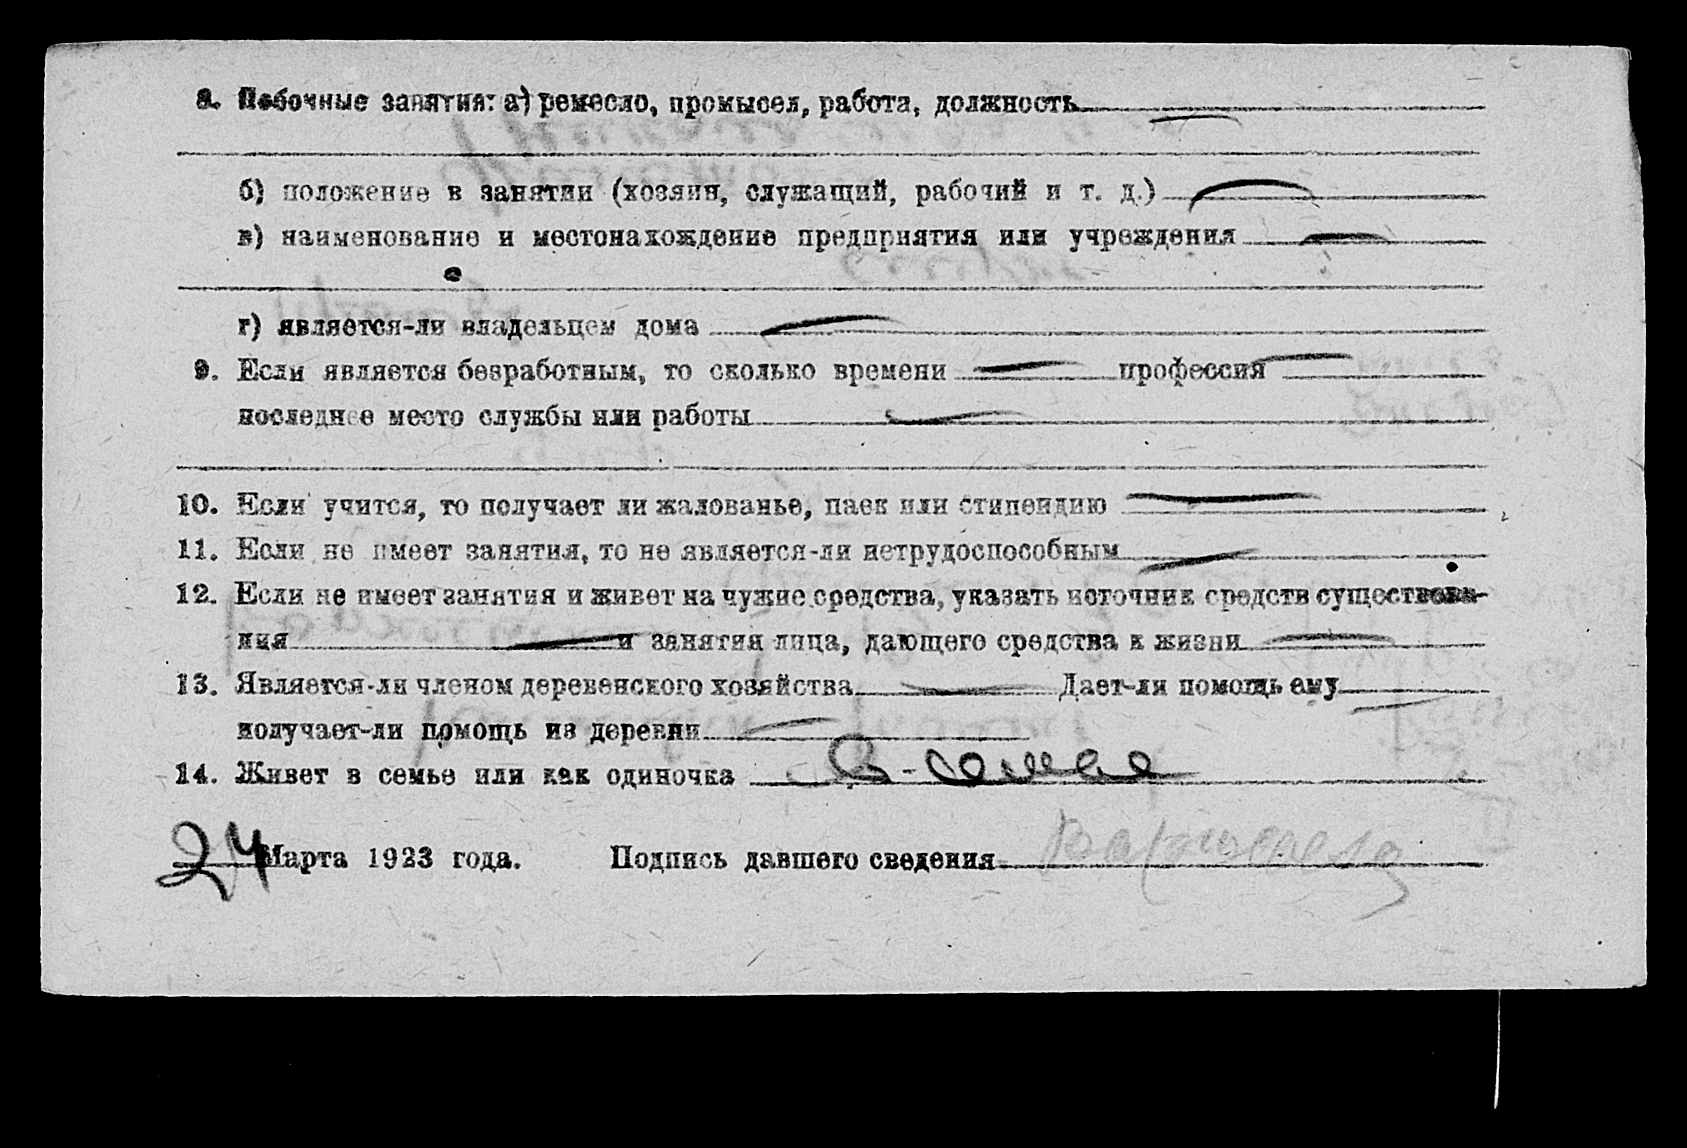 8. Побочные занятия: а) ремесло, промысел, работа, должность —
б) положение в занятии (хозяин, служащий, рабочий и т. д.) —
в) наименование и местонахождение предприятия или учреждения —
г) является-ли владельцем дома —
9. Если является безработным, то сколько времени — профессия —
последнее место службы или работы —
10. Если учится, то получает ли жалованье, паек или стипендию —
11. Если не имеет занятия, то не является-ли нетрудоспособным —
12. Если не имеет занятия и живет на чужие средства, указать источник средств существова-
ния — и занятия лица, дающего средства к жизни —
13. Является-ли членом деревенского хозяйства — Дает-ли помощь ему —
получает-ли помощь из деревни —
14. Живет в семье или как одиночка В-семье
24 Марта 1923 года. Подпись давшего сведения